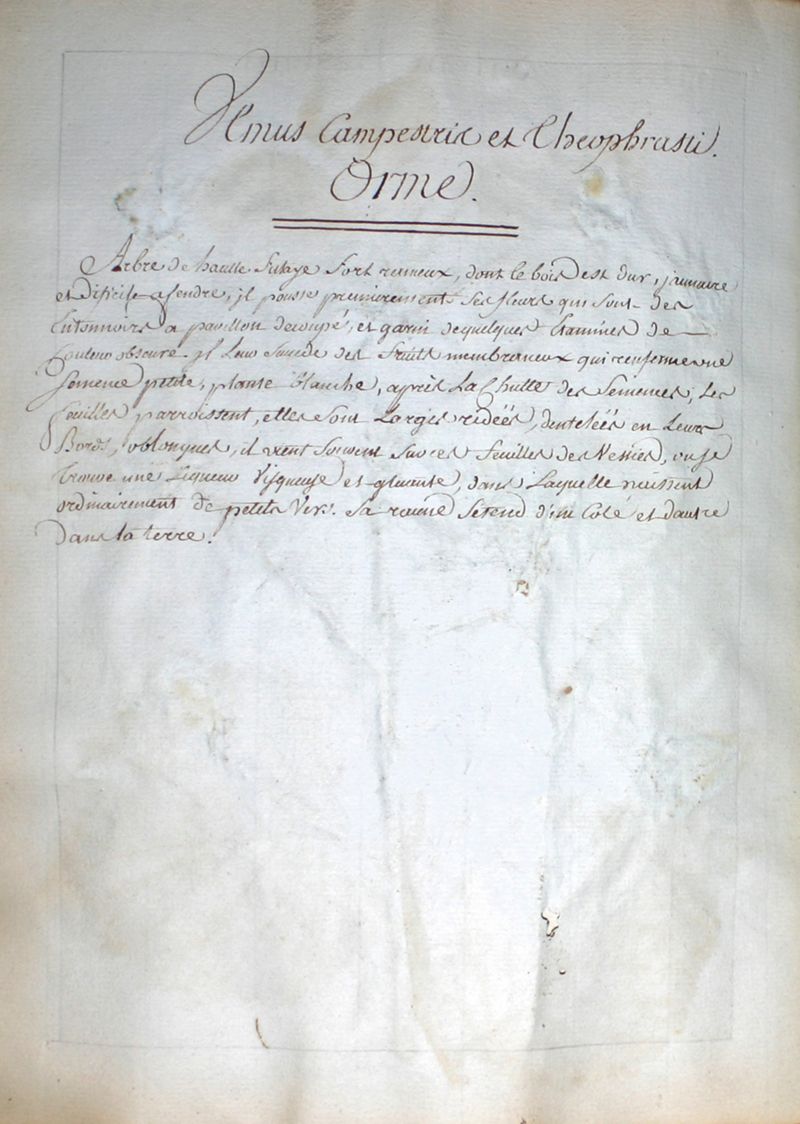 Ulmus Campestris et Theophrasti.
Orme.
Arbre de haulte futaye fort rameux, dont le bois est dur, jaunatre
et dificile a fendre, jl pousse premierement ses fleurs qui sont des
Entonnoirs a pavillon decoupé, et garin de quelques Etamines de
Couleur obscure. jl leur succede des fruits membraneux qui renferme une
semence petite, blanche, après La Chutte des Semences, Les
feuilles parroissent, elles sont Larges ridées, dentelées en Leurs
Bords, oblongues, il vient souvent sur ces feuilles des Vessies, ou se
trouve une Liqueur Visqueuse et gluante, dans Laquelle naissent
ordinairement de petits Vers. sa racine s'etend d'un Coté et d'autre
Dans la terre.